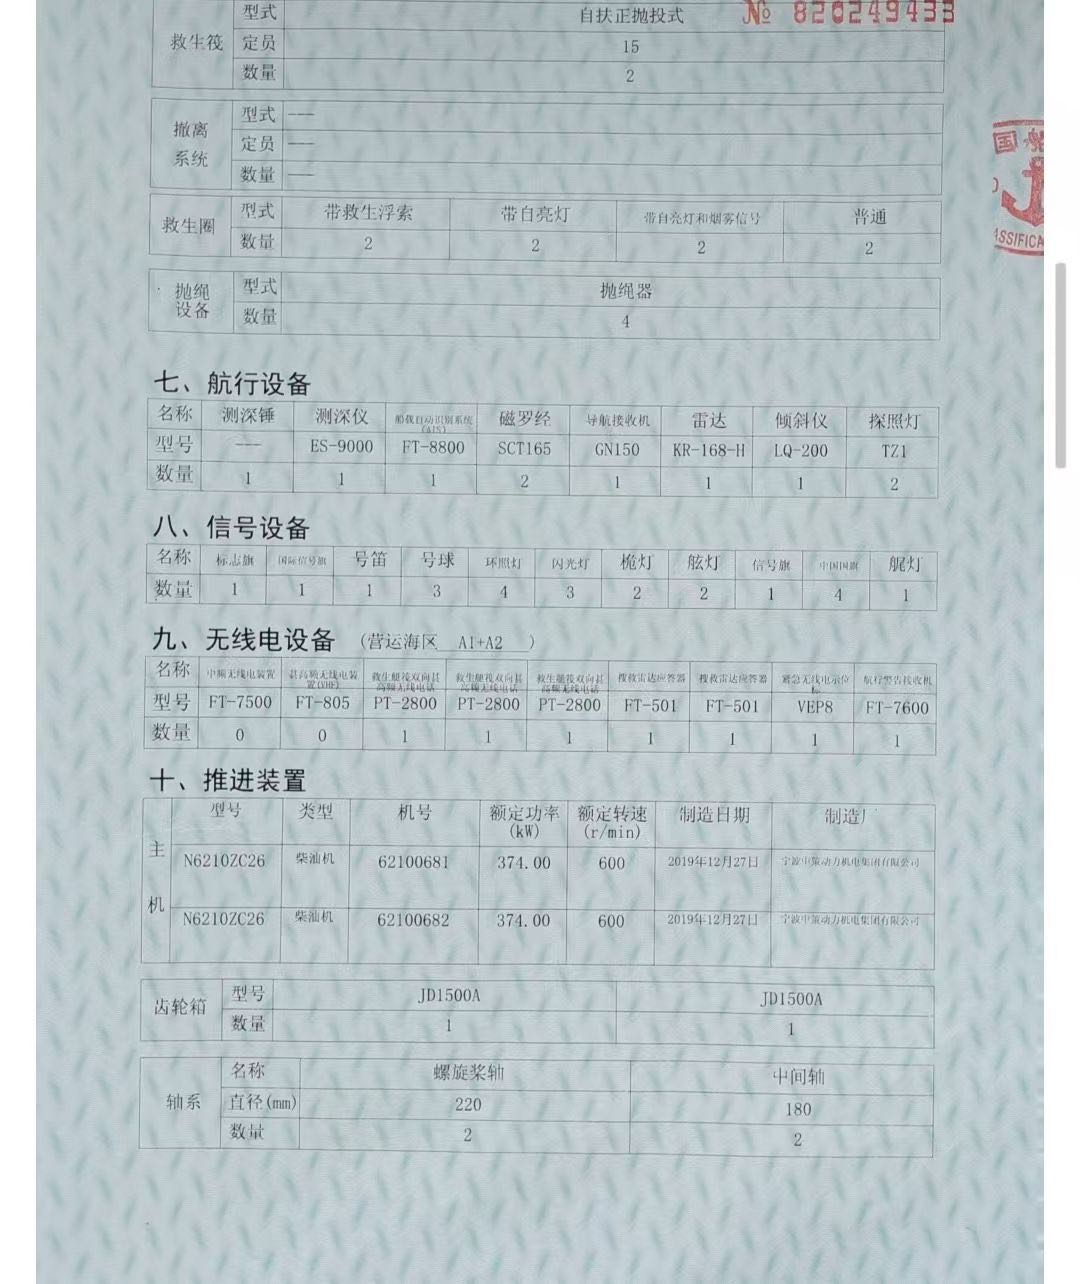 № 820249433
救生筏 型式 自扶正抛投式
定员 15
数量 2
撤离系统 型式 ---
定员 ---
数量 ---
救生圈 型式 带救生浮索 带自亮灯 带自亮灯和烟雾信号 普通
数量 2 2 2 2
抛绳设备 型式 抛绳器
数量 4
七、航行设备
名称 测深锤 测深仪 船载自动识别系统(AIS) 磁罗经 导航接收机 雷达 倾斜仪 探照灯
型号 --- ES-9000 FT-8800 SCT165 GN150 KR-168-H LQ-200 TZ1
数量 1 1 1 2 1 1 1 2
八、信号设备
名称 标志旗 国际信号旗 号笛 号球 环照灯 闪光灯 桅灯 舷灯 信号旗 中国国旗 艉灯
数量 1 1 1 3 4 3 2 2 1 4 1
九、无线电设备 (营运海区 A1+A2 )
名称 中频无线电装置 甚高频无线电装置(VHF) 救生艇筏双向甚高频无线电话 救生艇筏双向甚高频无线电话 救生艇筏双向甚高频无线电话 搜救雷达应答器 搜救雷达应答器 紧急无线电示位标 航行警告接收机
型号 FT-7500 FT-805 PT-2800 PT-2800 PT-2800 FT-501 FT-501 VEP8 FT-7600
数量 0 0 1 1 1 1 1 1 1
十、推进装置
主机 型号 类型 机号 额定功率(kW) 额定转速(r/min) 制造日期 制造厂
N6210ZC26 柴油机 62100681 374.00 600 2019年12月27日 宁波中策动力机电集团有限公司
N6210ZC26 柴油机 62100682 374.00 600 2019年12月27日 宁波中策动力机电集团有限公司
齿轮箱 型号 JD1500A JD1500A
数量 1 1
轴系 名称 螺旋桨轴 中间轴
直径(mm) 220 180
数量 2 2